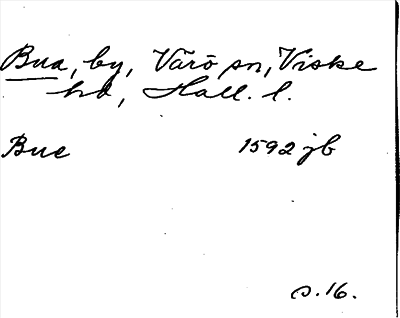 Bua, by, Värö sn, Viske
hd, Hall. l.
Bue 1592 jb
s. 16.